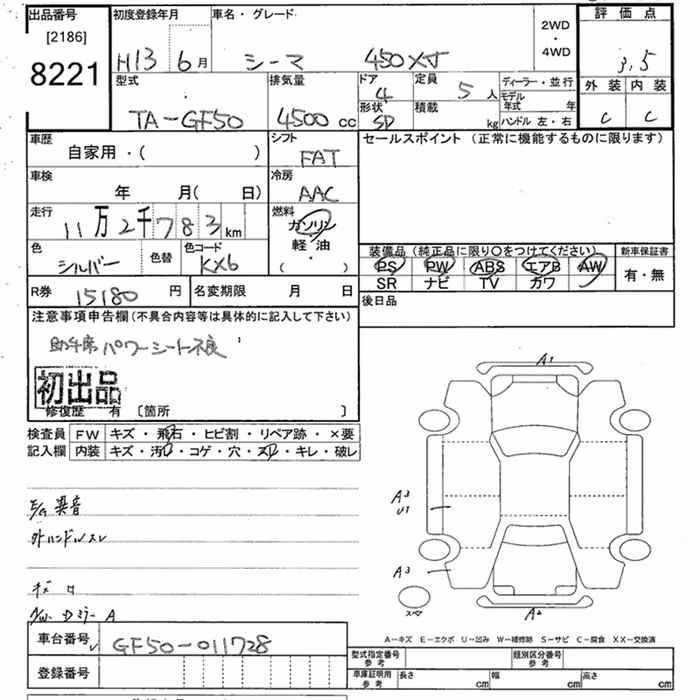 出品番号 初度登録年月 車名・グレード 2WD・4WD 評価点
[2186]
8221
H13 6月 シーマ 450XJ 3.5
外装 内装
C C
型式 排気量 ドア 定員 ディーラー・並行
TA-GF50 4500cc 4 5人
モデル年式 年
形状 積載
SD kg ハンドル 左・右
車歴 シフト セールスポイント(正常に機能するものに限ります)
自家用・( ) FAT
車検 冷房
年 月( 日) AAC
走行 燃料
11万2千783km ガソリン
軽・油
・
( )
色 色替 色コード
シルバー KX6
装備品(純正品に限り〇をつけてください) 新車保証書
PS PW ABS エアB AW 有・無
SR ナビ TV カワ
R券 15180円 名変期限 月 日
後日品
注意事項申告欄(不具合内容等は具体的に記入して下さい)
助手席パワーシート不良
初出品
修復歴 有 [箇所 ]
検査員 FW キズ・飛石・ヒビ割・リペア跡・×要
記入欄 内装 キズ・汚レ・コゲ・穴・スレ・キレ・破レ
A1
E/G異音
外ハンドルスレ
A3
U1
A3
A2
スペア
キズ
AW・Dミラー A
A-キズ E-エクボ U-凹み W-補修跡 S-サビ C-腐食 XX-交換済
車台番号 GF50-011728
型式指定番号 参考 類別区分番号 参考
登録番号
車庫証明用 参考 長さ cm 幅 cm 高さ cm